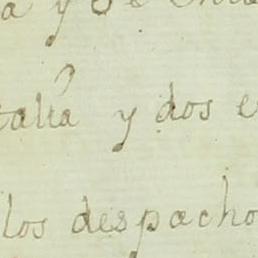 a y de
talia y dos e
los despacho